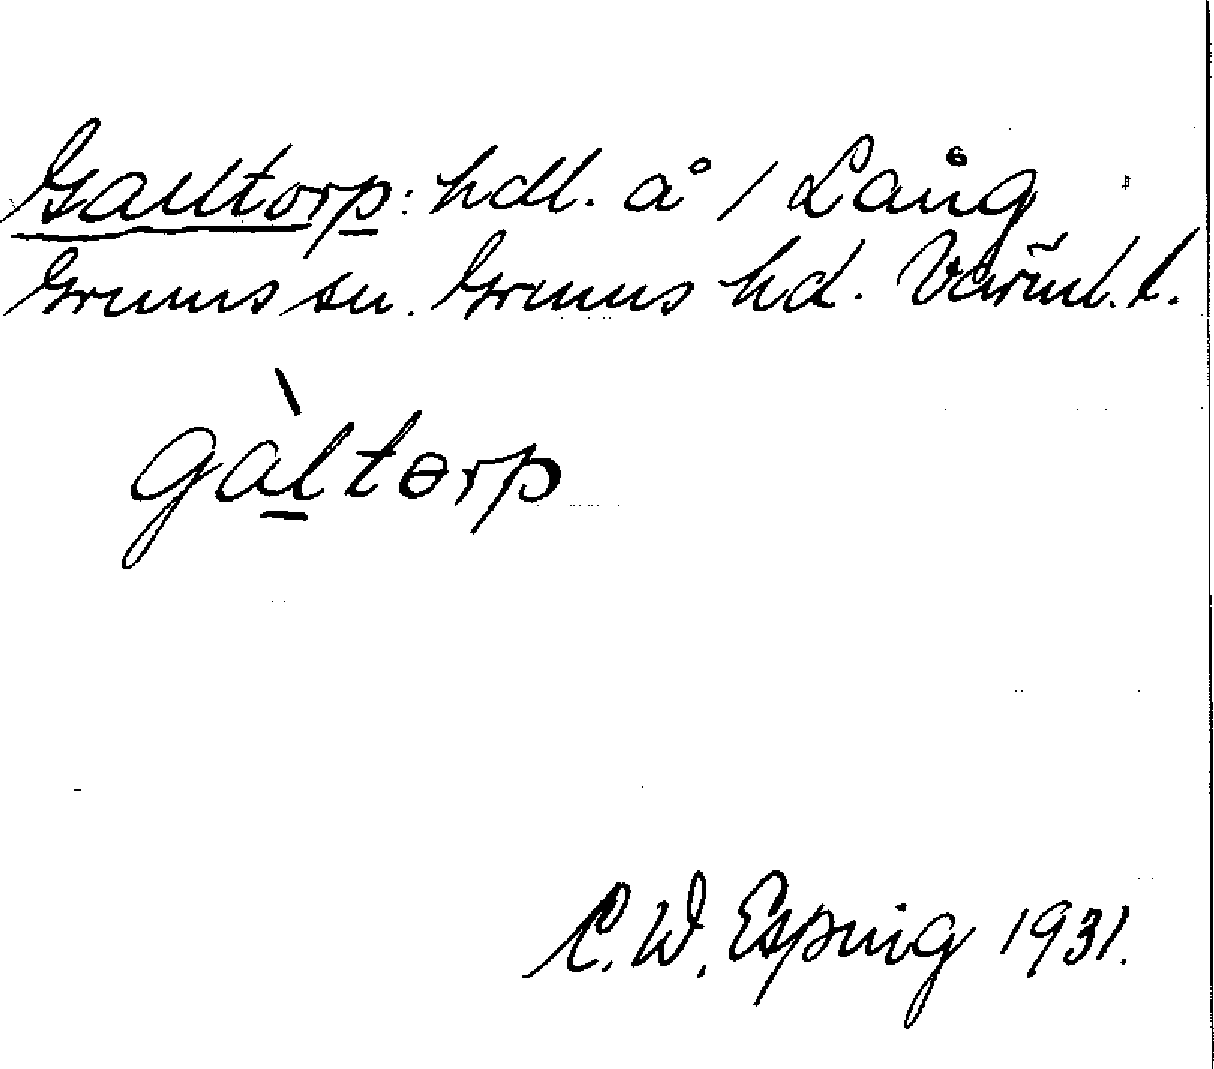 Galltorp: hdl. å / Lång
Grums sn. Grums hd. Värml. l.
gàltorp
C. W. Esping 1931.